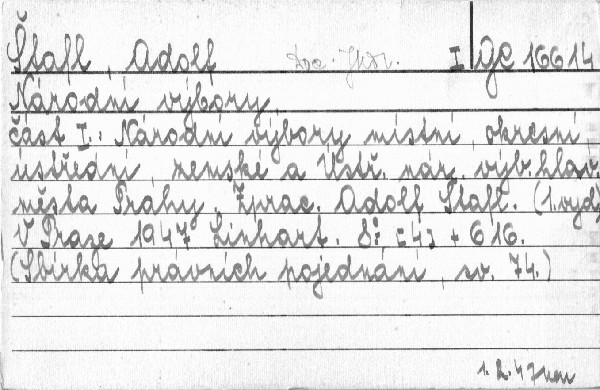 Štafl, Adolf Doc. JUDr. I GC 16614
Národní výbory.
část I.: Národní výbory místní, okresní,
ústřední, zemské a Ústř. nár. výb. hlav.
města Prahy. Zprac. Adolf Štafl. (1. vyd)
V Praze 1947 Linhart. 8°. [4] + 616.
(Sbírka právních pojednání, sv. 74.)
1. 2. 47